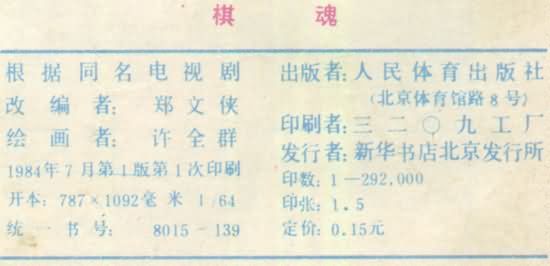 棋魂
根据同名电视剧
改编者：郑文侠
绘画者：许全群
1984年7月第1版第1次印刷
开本：787×1092毫米 1/64
统一书号：8015-139
出版者：人民体育出版社
（北京体育馆路8号）
印刷者：三二〇九工厂
发行者：新华书店北京发行所
印数：1—292,000
印张：1.5
定价：0.15元